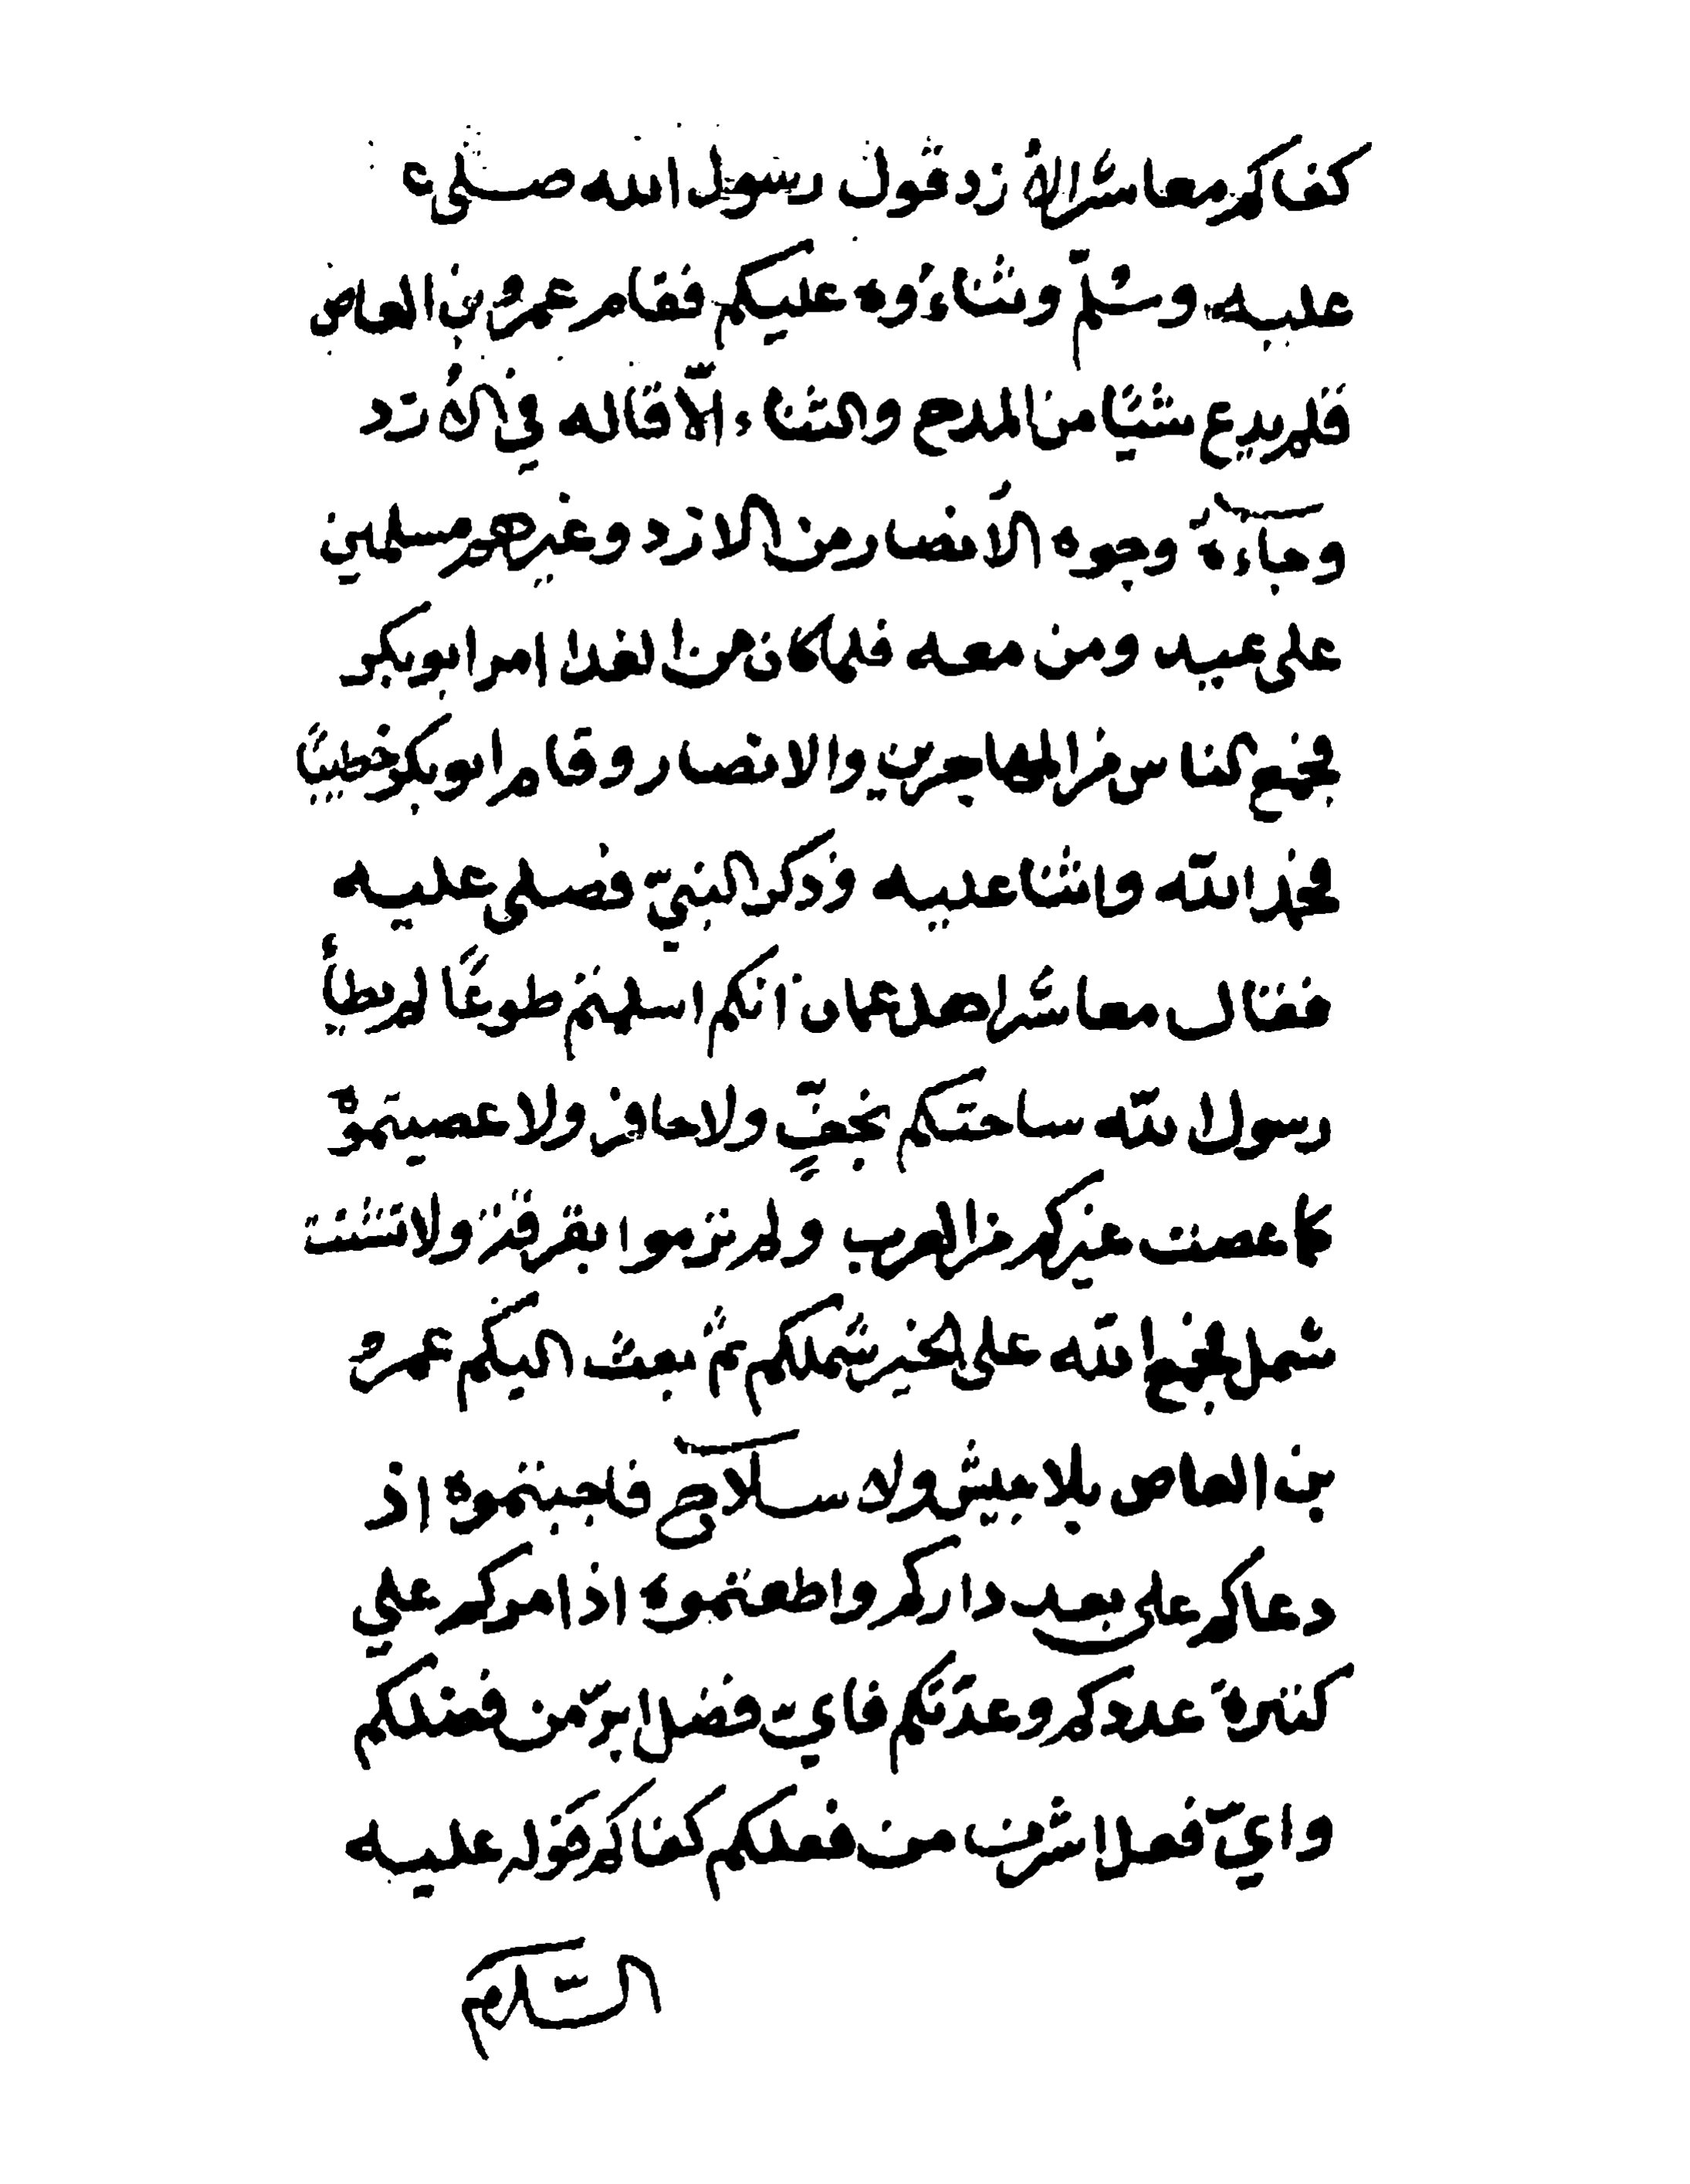 كفاكم معاشر الأزد قول رسول الله صلى
عليه وسلّم وثناءُوه عليكم فقام عمرو بن العاص
فلم يدع شيئًا من المدح والثناء الّا قاله في الأزد
وجآءهُ وجوه الأنصار من الازد وغيرهم مسلمين
على عبد ومن معه فلما كان من الغد امر ابو بكر
فجمع الناس من المهاجرين والانصار وقام ابو بكر خطيبًا
فحمد الله واثنا عليه وذكر النبيّ فصلى عليه
فقال معاشر اهل عمان انكم اسلمتم طوعًا لم يطأ
رسول الله ساحتكم بخفٍّ ولا حافر ولا عصيتموه
كما عصت غيركم من العرب ولم ترموا بفرقة ولا تشتت
شمل فجمع الله على الخير شملكم ثم بعث اليكم عمرو
بن العاص بلا جيش ولا سلاح فاجبتموه اذ
دعاكم على بعد داركم واطعتموه اذ امركم على
كثرة عددكم وعدّتكم فايّ فضل ابرّ من فضلكم
وايّ فعل اشرف من فعلكم كفاكم قوله عليه
السّلام